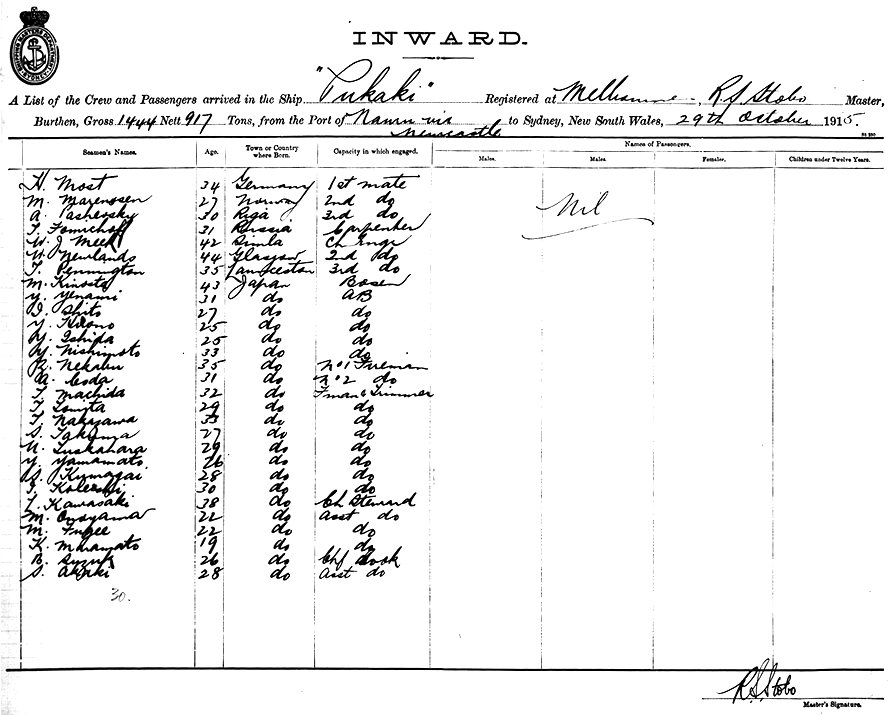 SHIPPING MASTERS DEPARTMENT SYDNEY
INWARD.
A List of the Crew and Passengers arrived in the Ship "Pukaki" Registered at Melbourne R S Stobo Master,
Burthen, Gross 1444 Nett 917 Tons, from the Port of Nauru via Newcastle to Sydney, New South Wales, 29th October 1915.
Seamen's Names. Age. Town or Country where Born. Capacity in which engaged. Names of Passengers.
Males. Males. Females. Children under Twelve Years.
H. Most 34 Germany 1st mate
M. 27 Norway 2nd do Nil
A. 30 Riga 3rd do
31 Russia Carpenter
W. J Meek 42 Simla Ch Engr
W. Newlands 44 Glasgow 2nd do
T. Pennington 35 Launceston 3rd do
M. Kinosta 43 Japan Bosen
Y. Yenami 31 do AB
Shito 27 do do
Y. 25 do do
Y. Ishida 25 do do
Y. Nishimoto 33 do do
35 do No 1 Fireman
A. Coda 31 do No 2 do
T. Machida 32 do Fman & Trimmer
T. 29 do do
T. Nakagawa 33 do do
S. 27 do do
Tuskahara 29 do do
Y. Yamamato 26 do do
Kumagai 28 do do
30 do do
Kawasaki 38 do Ch Steward
M. 22 do Asst do
M. Fugee 22 do do
K. 19 do do
26 do Chf Cook
S. 28 do Asst do
30.
R S Stobo
Master's Signature.